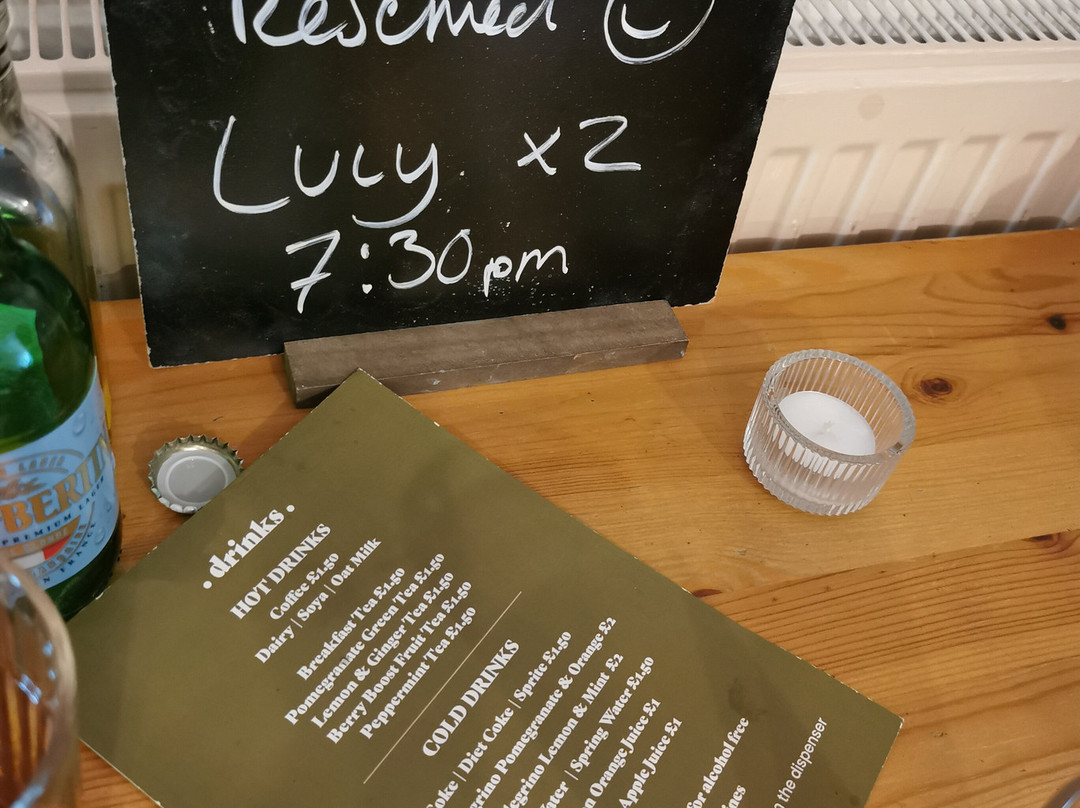 Reserved
Lucy x2
7:30pm
LAGER
BERLIN
PREMIUM LAGER
IN FRANCE
• drinks •
HOT DRINKS
Coffee £1.50
Dairy | Soya | Oat Milk
Breakfast Tea £1.50
Pomegranate Green Tea £1.50
Lemon & Ginger Tea £1.50
Berry Boost Fruit Tea £1.50
Peppermint Tea £1.50
COLD DRINKS
Coke | Diet Coke | Sprite £1.50
Pomegranate & Orange £2
Lemon & Mint £2
| Spring Water £1.50
Orange Juice £1
Apple Juice £1
for alcohol free
the dispenser